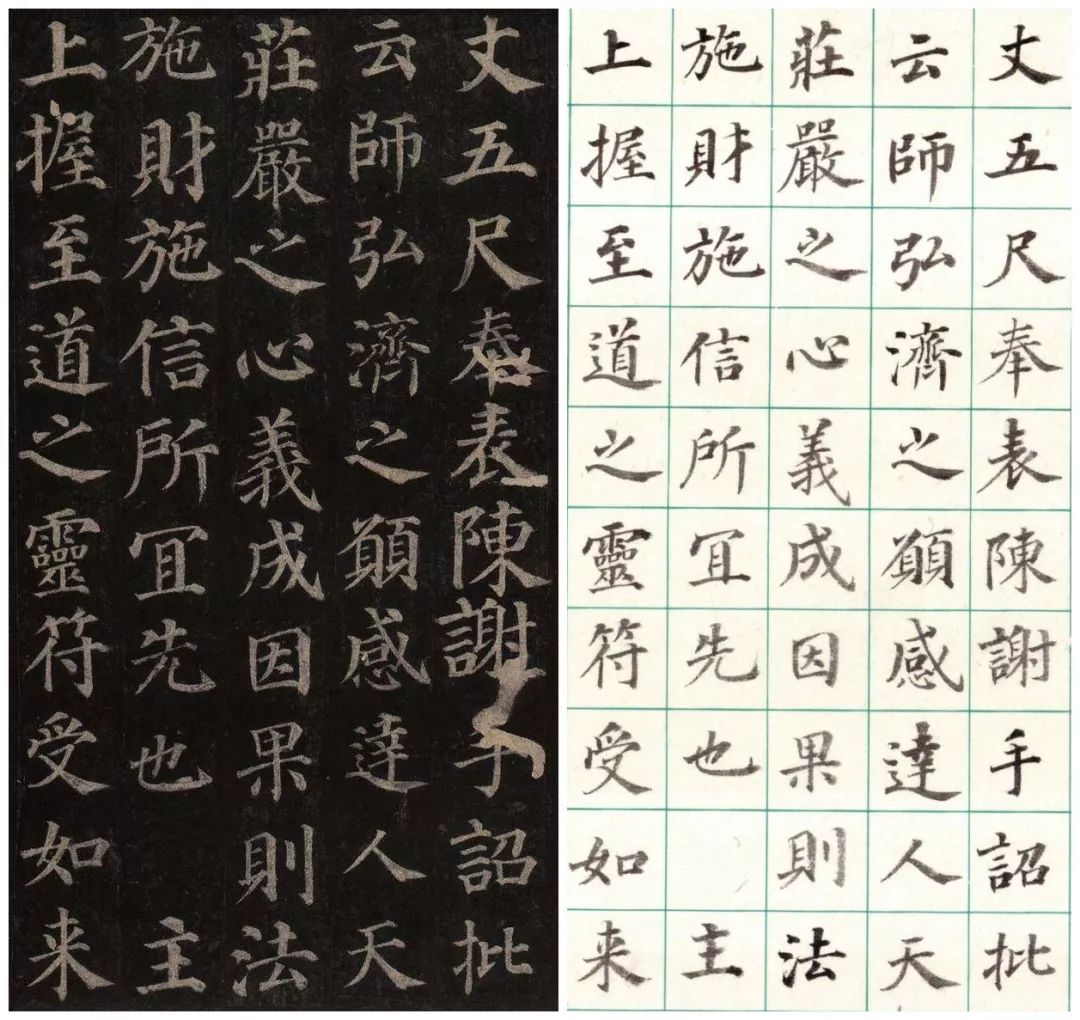 丈五尺奉表陳謝手詔批
云師弘濟之願感達人天
莊嚴之心義成因果則法
施財施信所宜先也 主
上握至道之靈符受如来
丈五尺奉表陳謝手詔批
云師弘濟之願感達人天
莊嚴之心義成因果則法
施財施信所宜先也 主
上握至道之靈符受如来